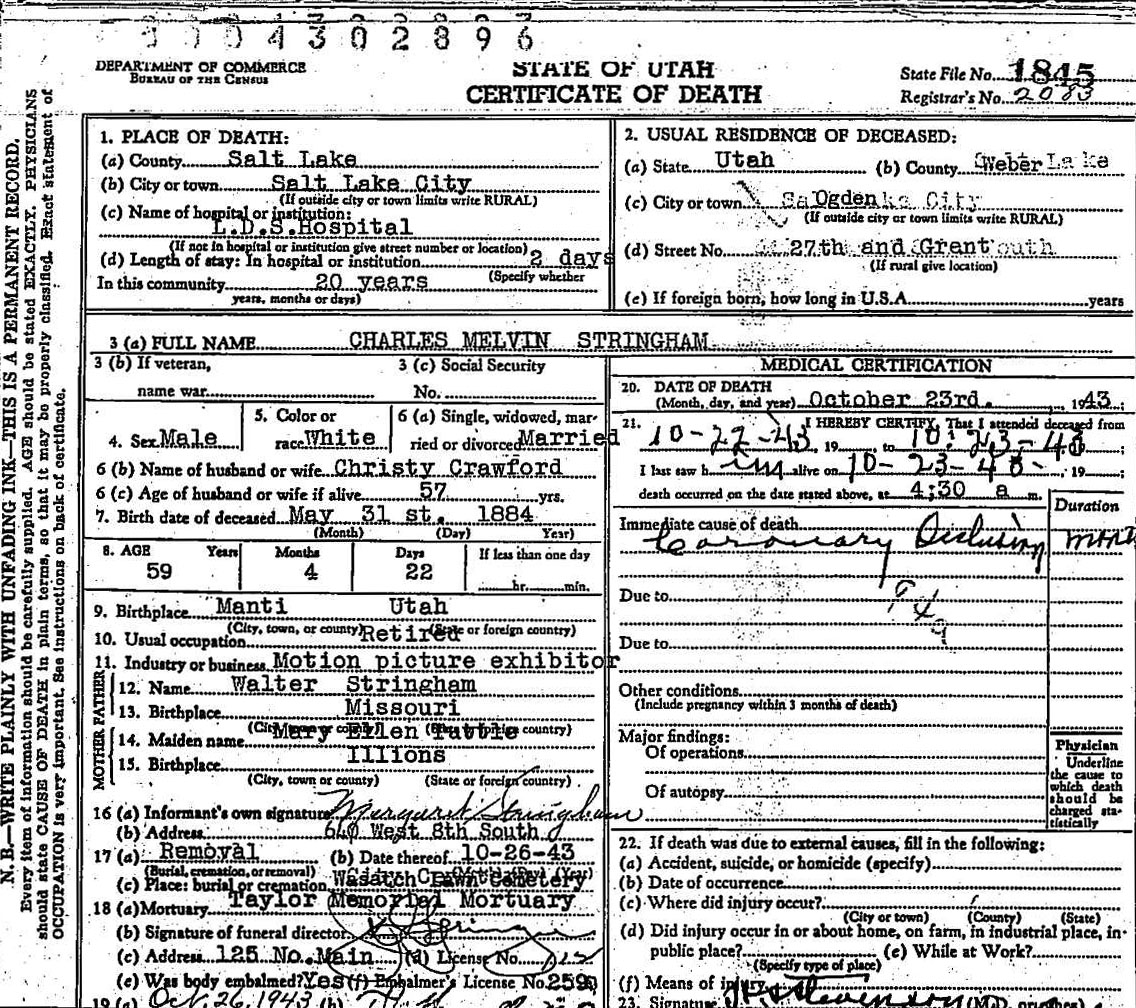 0 0 4 3 0 2 8 9 6
DEPARTMENT OF COMMERCE
BUREAU OF THE CENSUS
STATE OF UTAH
CERTIFICATE OF DEATH
State File No. 1845
Registrar's No. 2083
N. B.—WRITE PLAINLY WITH UNFADING INK—THIS IS A PERMANENT RECORD.
Every item of information should be carefully supplied. AGE should be stated EXACTLY. PHYSICIANS
should state CAUSE OF DEATH in plain terms, so that it may be properly classified. Exact statement of
OCCUPATION is very important. See instructions on back of certificate.
1. PLACE OF DEATH:
(a) County Salt Lake
(b) City or town Salt Lake City
(If outside city or town limits write RURAL)
(c) Name of hospital or institution:
L.D.S.Hospital
(If not in hospital or institution give street number or location)
(d) Length of stay: In hospital or institution 2 days
(Specify whether
In this community 20 years
years, months or days)
2. USUAL RESIDENCE OF DECEASED:
(a) State Utah (b) County Weber
(c) City or town Ogden City
(If outside city or town limits write RURAL)
(d) Street No. 27th and Grant
(If rural give location)
(e) If foreign born, how long in U.S.A. years
3 (a) FULL NAME CHARLES MELVIN STRINGHAM
3 (b) If veteran,
name war
3 (c) Social Security
No.
4. Sex Male
5. Color or
race White
6 (a) Single, widowed, mar-
ried or divorced Married
6 (b) Name of husband or wife Christy Crawford
6 (c) Age of husband or wife if alive 57 yrs.
7. Birth date of deceased May 31 st. 1884
(Month) (Day) Year)
8. AGE Years Months Days If less than one day
59 4 22 hr. min.
9. Birthplace Manti Utah
(City, town, or county) (State or foreign country)
10. Usual occupation Retired
11. Industry or business Motion picture exhibitor
FATHER
12. Name Walter Stringham
13. Birthplace Missouri
(City, town or county) (State or foreign country)
MOTHER
14. Maiden name Mary Ellen Tuttle
15. Birthplace Illions
(City, town or county) (State or foreign country)
16 (a) Informant's own signature Margaret Stringham
(b) Address 640 West 8th South
17 (a) Removal (b) Date thereof 10-26-43
(Burial, cremation, or removal) (Year)
(c) Place: burial or cremation Wasatch Lawn Cemetery
18 (a) Mortuary Taylor Memorial Mortuary
(b) Signature of funeral director
(c) Address 125 No. Main (d) License No.
(e) Was body embalmed? Yes (f) Embalmer's License No. 259
19 (a) Oct. 26, 1943 (b)
MEDICAL CERTIFICATION
20. DATE OF DEATH
(Month, day, and year) October 23rd. , 1943;
21. I HEREBY CERTIFY, That I attended deceased from
10-22-43, 19 to 10-23-43;
I last saw him alive on 10-23-43, 19 ;
death occurred on the date stated above, at 4;30 a m.
Duration
Immediate cause of death
Coronary Occlusion
Due to
Due to
Other conditions
(Include pregnancy within 3 months of death)
Major findings:
Of operations
Of autopsy
Physician
Underline
the cause to
which death
should be
charged sta-
tistically
22. If death was due to external causes, fill in the following:
(a) Accident, suicide, or homicide (specify)
(b) Date of occurrence
(c) Where did injury occur?
(City or town) (County) (State)
(d) Did injury occur in or about home, on farm, in industrial place, in-
public place? (e) While at Work?
(Specify type of place)
(f) Means of injury
23. Signature (M.D. or other)